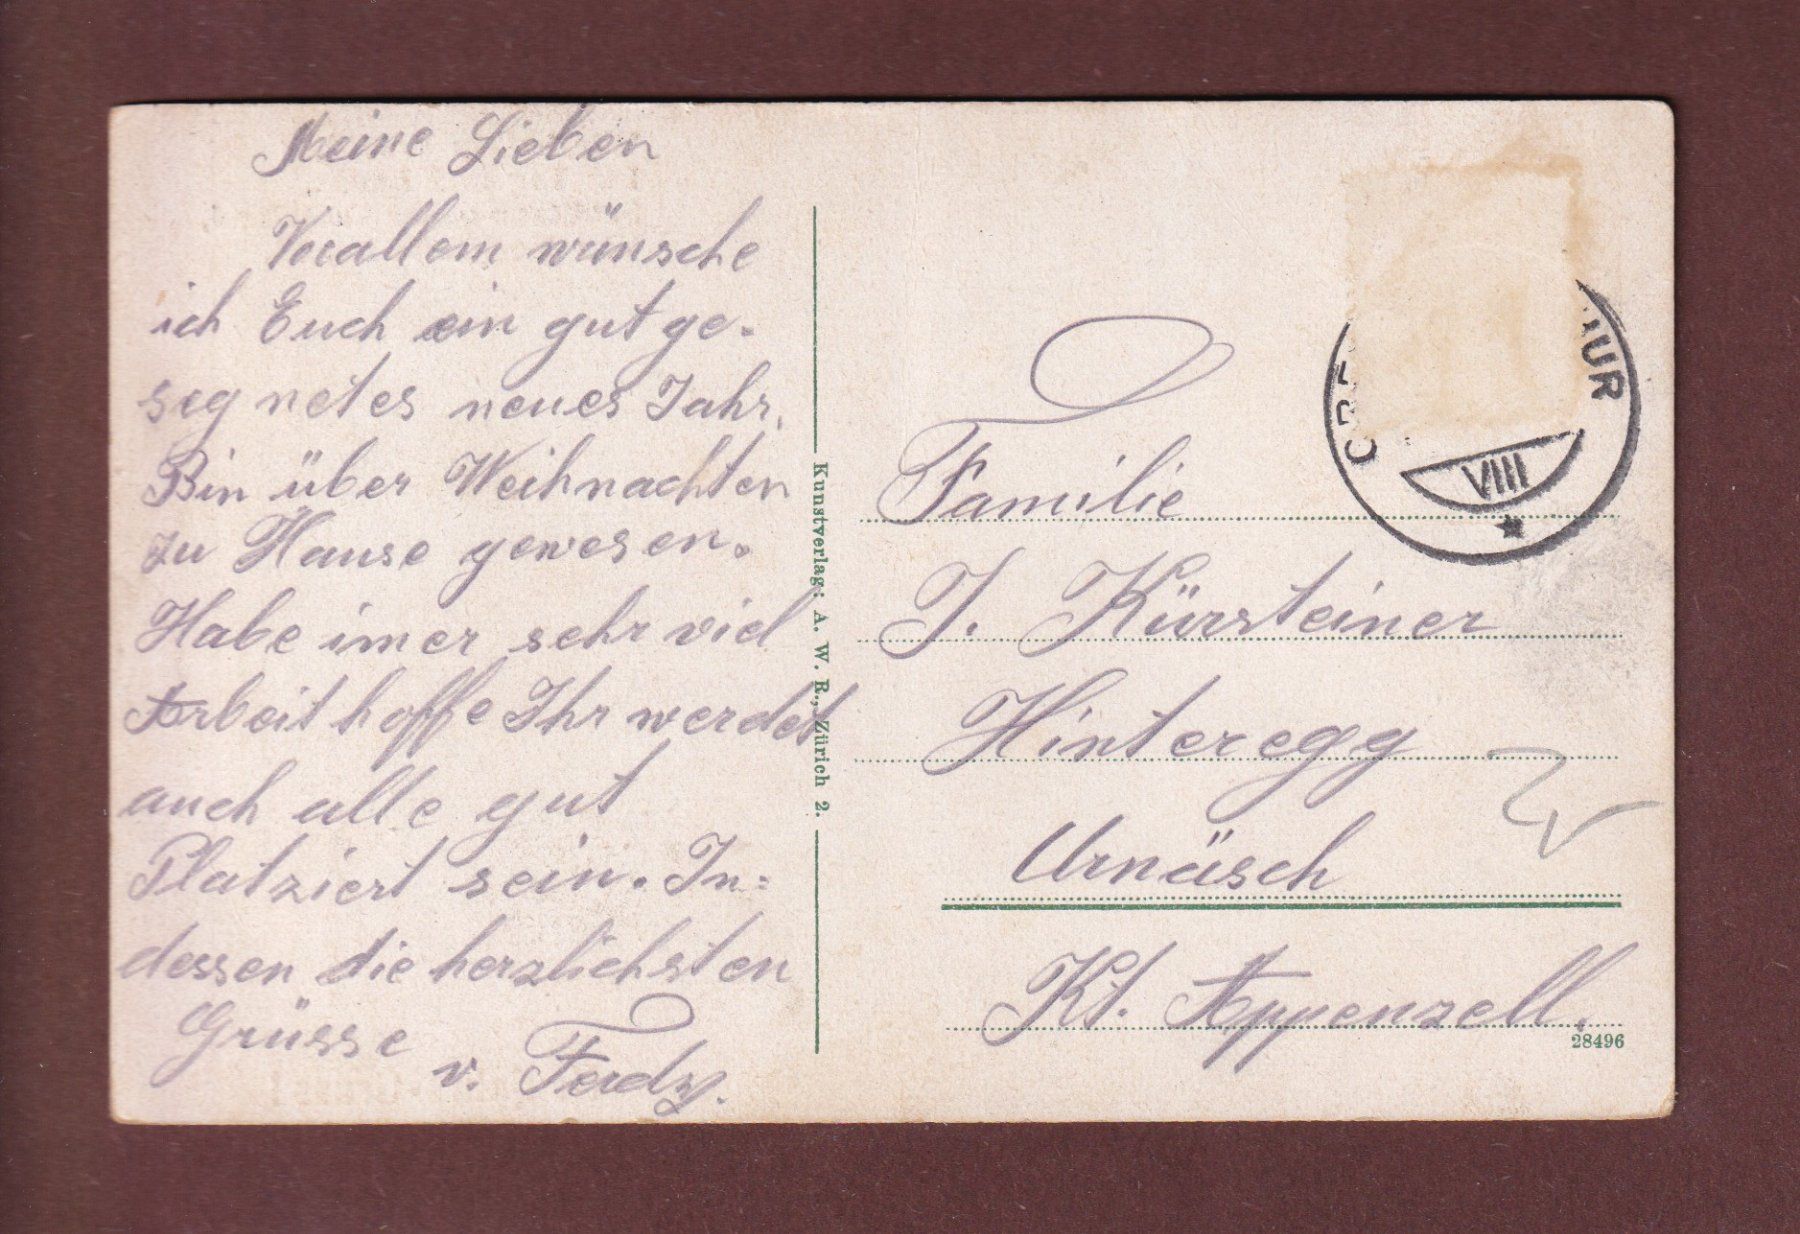 Meine Lieben
Vorallem wünsche
ich Euch ein gut ge-
segnetes neues Jahr.
Bin über Weihnachten
zu Hause gewesen.
Habe imer sehr viel
Arbeit hoffe Ihr werdet
auch alle gut
Platziert sein. In=
dessen die herzlichsten
Grüsse
v. Ferdy.
Kunstverlag: A. W. B., Zürich 2.
UR
VIII
Familie
J. Kürsteiner
Hinteregg
Urnäsch
Kt. Appenzell.
28496